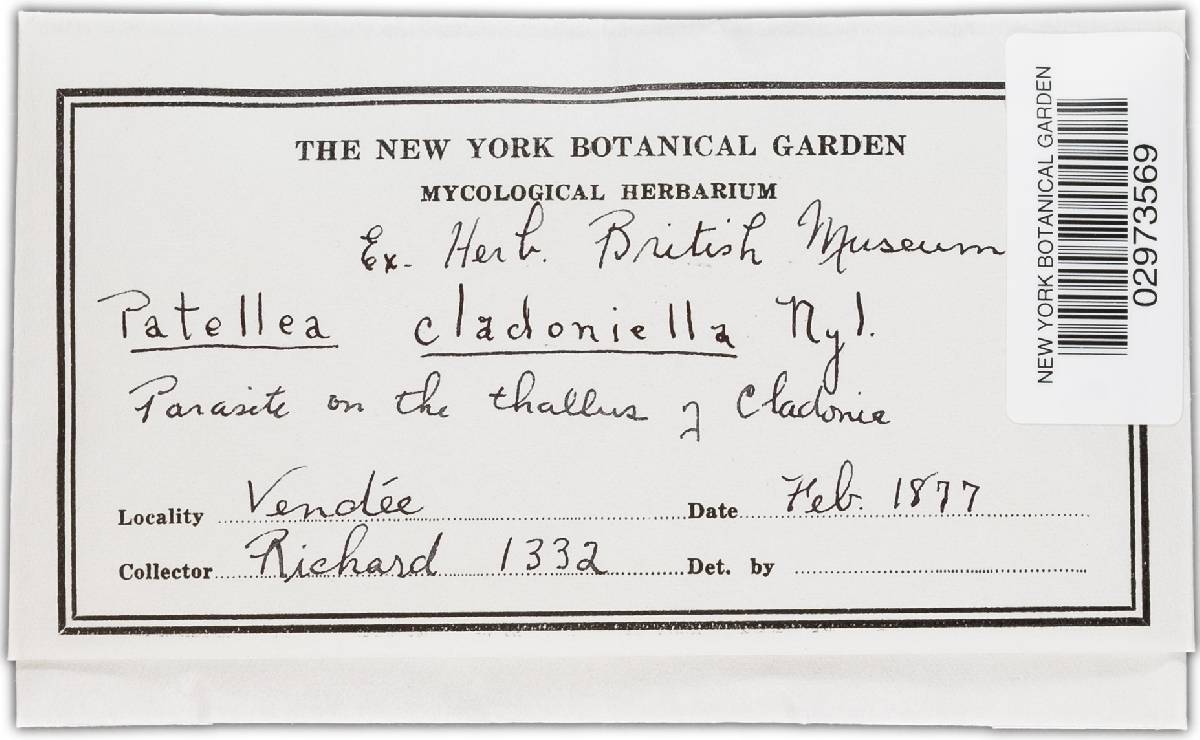 THE NEW YORK BOTANICAL GARDEN
MYCOLOGICAL HERBARIUM
Ex. Herb. British Museum
Patellea cladoniella Nyl.
Parasite on the thallus of Cladonia
Locality Vendée Date Feb. 1877
Collector Richard 1332 Det. by
NEW YORK BOTANICAL GARDEN
02973569